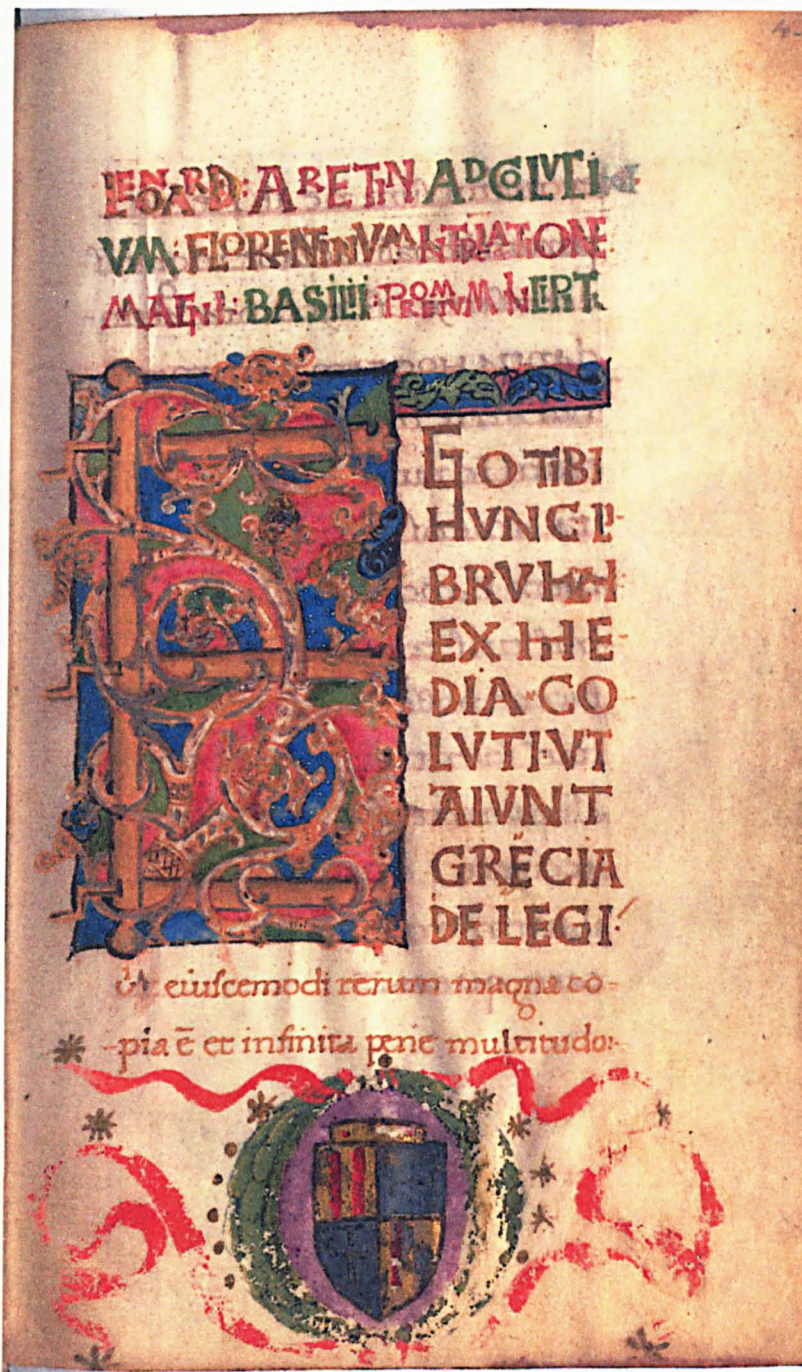 LEONARDI: ARETINI AD COLVTI
VM: FLORENTINVM: IN TRALATIONE
MAGNI: BASILII: PROEMIVM INCIPIT
EGO TIBI
HVNC LI
BRVM
EX ME
DIA· CO
LVTI· VT
AIVNT
GRECIA
DE LEGI·
eiuscemodi rerum magna co-
pia ē et infinita pene multitudo: